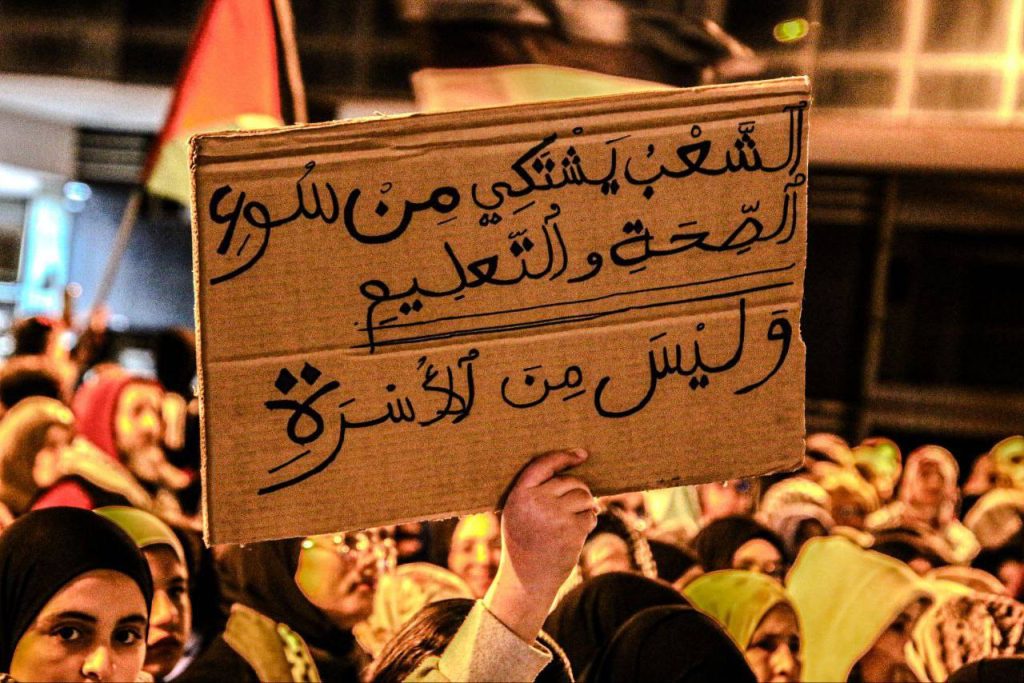 الشَّعْبُ يَشْتَكِي مِنْ سُوءِ
الصِّحَةِ و التَّعلِيمِ
وَلَيْسَ مِنَ الأُسْرَةِ